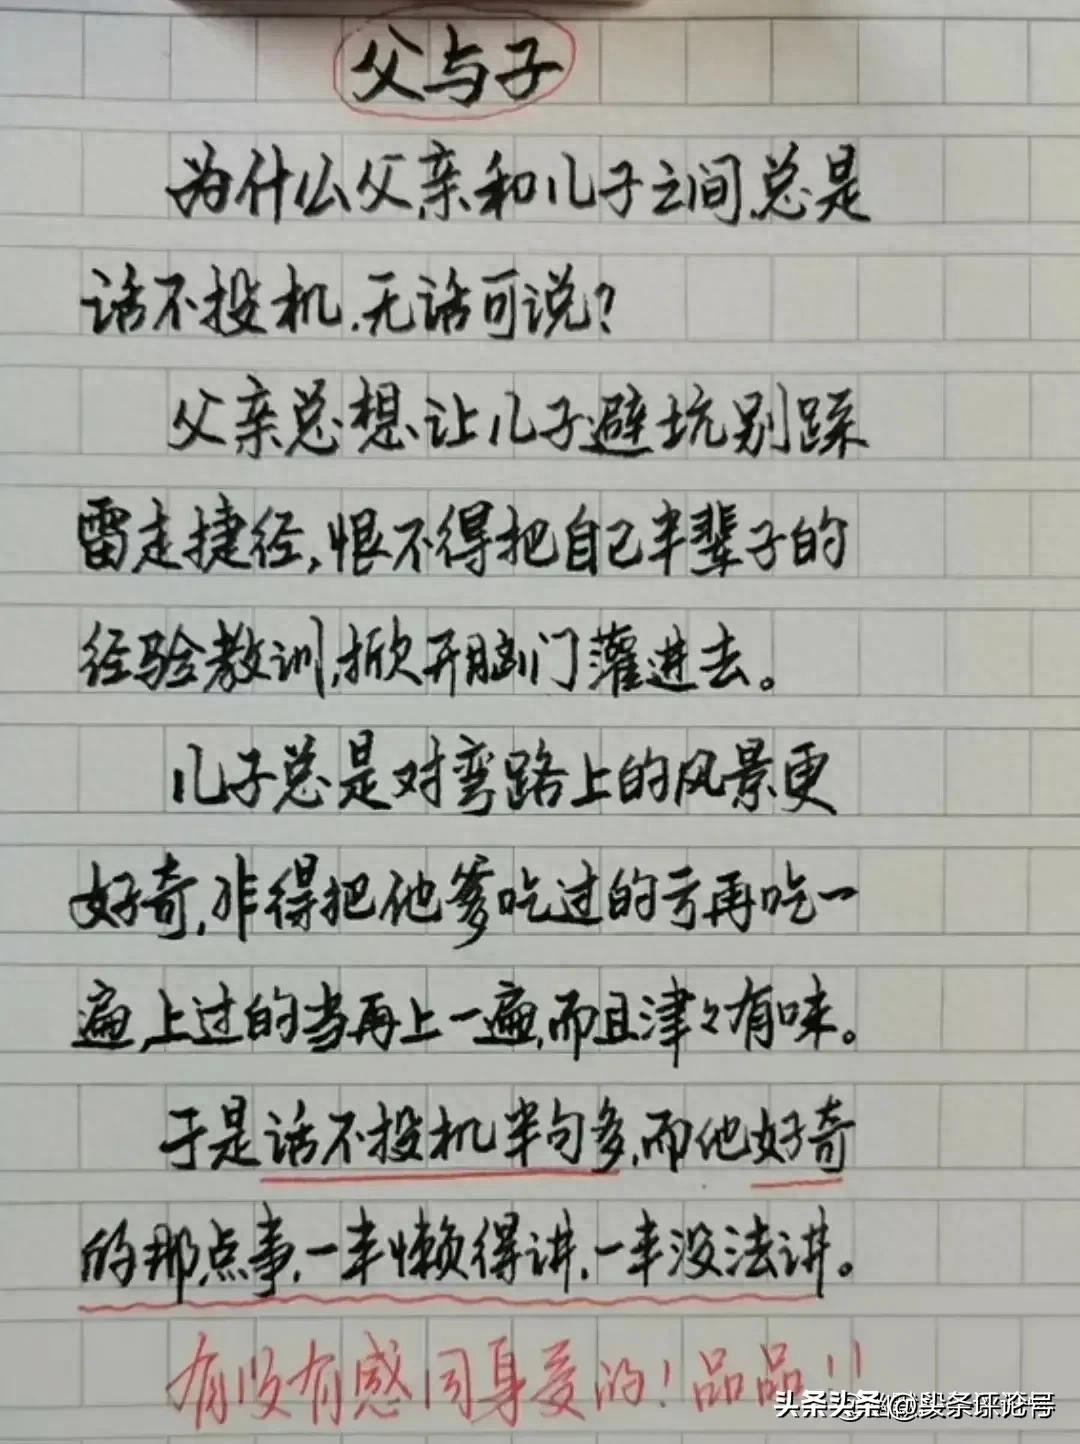 父与子
为什么父亲和儿子之间总是
话不投机.无话可说?
父亲总想让儿子避坑别踩
雷走捷径,恨不得把自己半辈子的
经验教训,掀开脑门灌进去。
儿子总是对弯路上的风景更
好奇,非得把他爹吃过的亏再吃一
遍,上过的当再上一遍,而且津々有味。
于是话不投机半句多,而他好奇
的那点事,一半懒得讲,一半没法讲。
有没有感同身受的!品品!!
头条头条@头条评论号